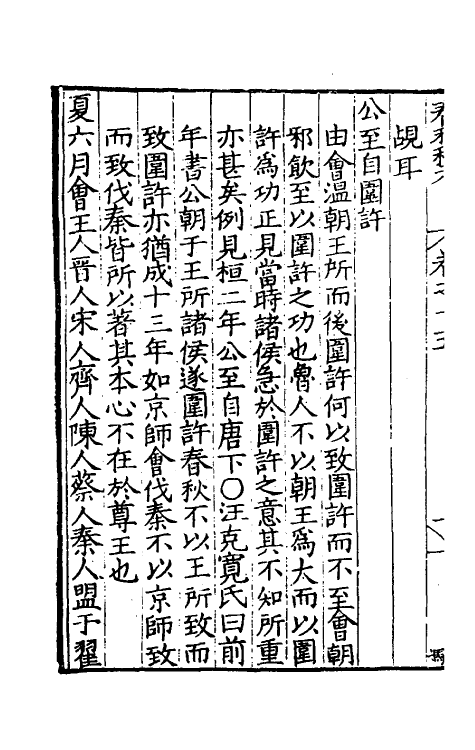 覘耳
公至自圍許
由會溫朝王所而後圍許何以致圍許而不至會朝
邪飲至以圍許之功也魯人不以朝王為大而以圍
許為功正見當時諸侯急於圍許之意其不知所重
亦甚矣例見桓二年公至自唐下○汪克寬氏曰前
年書公朝于王所諸侯遂圍許春秋不以王所致而
致圍許亦猶成十三年如京師會伐秦不以京師致
而致伐秦皆所以著其本心不在於尊王也
夏六月會王人晉人宋人齊人陳人蔡人秦人盟于翟